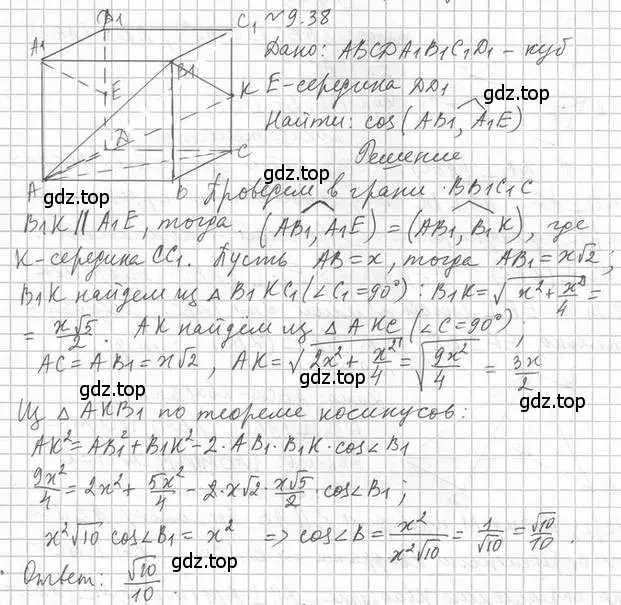 № 9.38
Дано: ABCDA₁B₁C₁D₁ – куб
E-середина DD₁
Найти: cos(AB₁, A₁E)
Решение
Проведем в грани BB₁C₁C
B₁K ∥ A₁E, тогда (AB₁, A₁E) = (AB₁, B₁K), где
K-середина CC₁. Пусть AB = x, тогда AB₁ = x√2;
B₁K найдем из △ B₁KC₁ (∠C₁ = 90°): B₁K = √(x² + x²/4) =
= x√5/2. AK найдем из △ AKC (∠C = 90°);
AC = AB₁ = x√2, AK = √(2x² + x²/4) = √(9x²/4) = 3x/2
Из △ AKB₁ по теореме косинусов:
AK² = AB₁² + B₁K² - 2·AB₁·B₁K·cos∠B₁
9x²/4 = 2x² + 5x²/4 - 2·x√2·x√5/2·cos∠B₁;
x²√10 cos∠B₁ = x² => cos∠B = x²/x²√10 = 1/√10 = √10/10.
Ответ: √10/10.
A1
D1
C1
B1
E
K
D
C
A
B
gdz.top
gdz.top
gdz.top
gdz.top
gdz.top
gdz.top
gdz.top
gdz.top
gdz.top